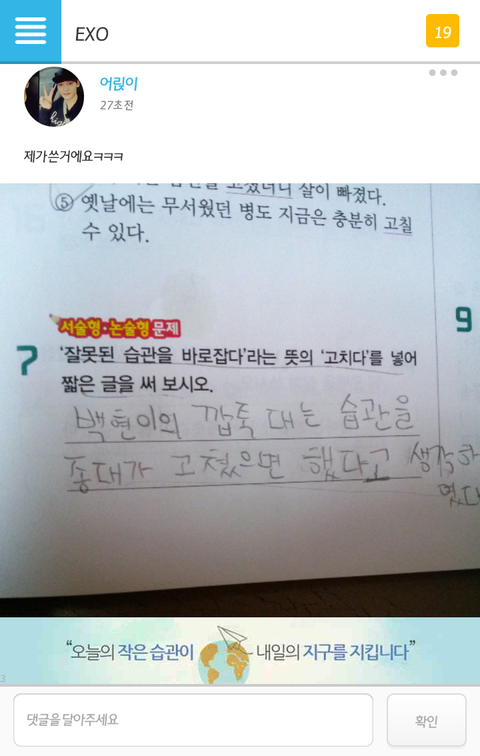 EXO
19
어륁이
27초 전
제가쓴거에요ㅋㅋㅋ
고쳤더니 살이 빠졌다.
⑤ 옛날에는 무서웠던 병도 지금은 충분히 고칠
수 있다.
서술형·논술형 문제
9
7 '잘못된 습관을 바로잡다'라는 뜻의 '고치다'를 넣어
짧은 글을 써 보시오.
백현이의 깝툭 대는 습관을
종대가 고쳤으면 했다고 생각하
였다
“오늘의 작은 습관이 내일의 지구를 지킵니다”
3
댓글을 달아주세요
확인